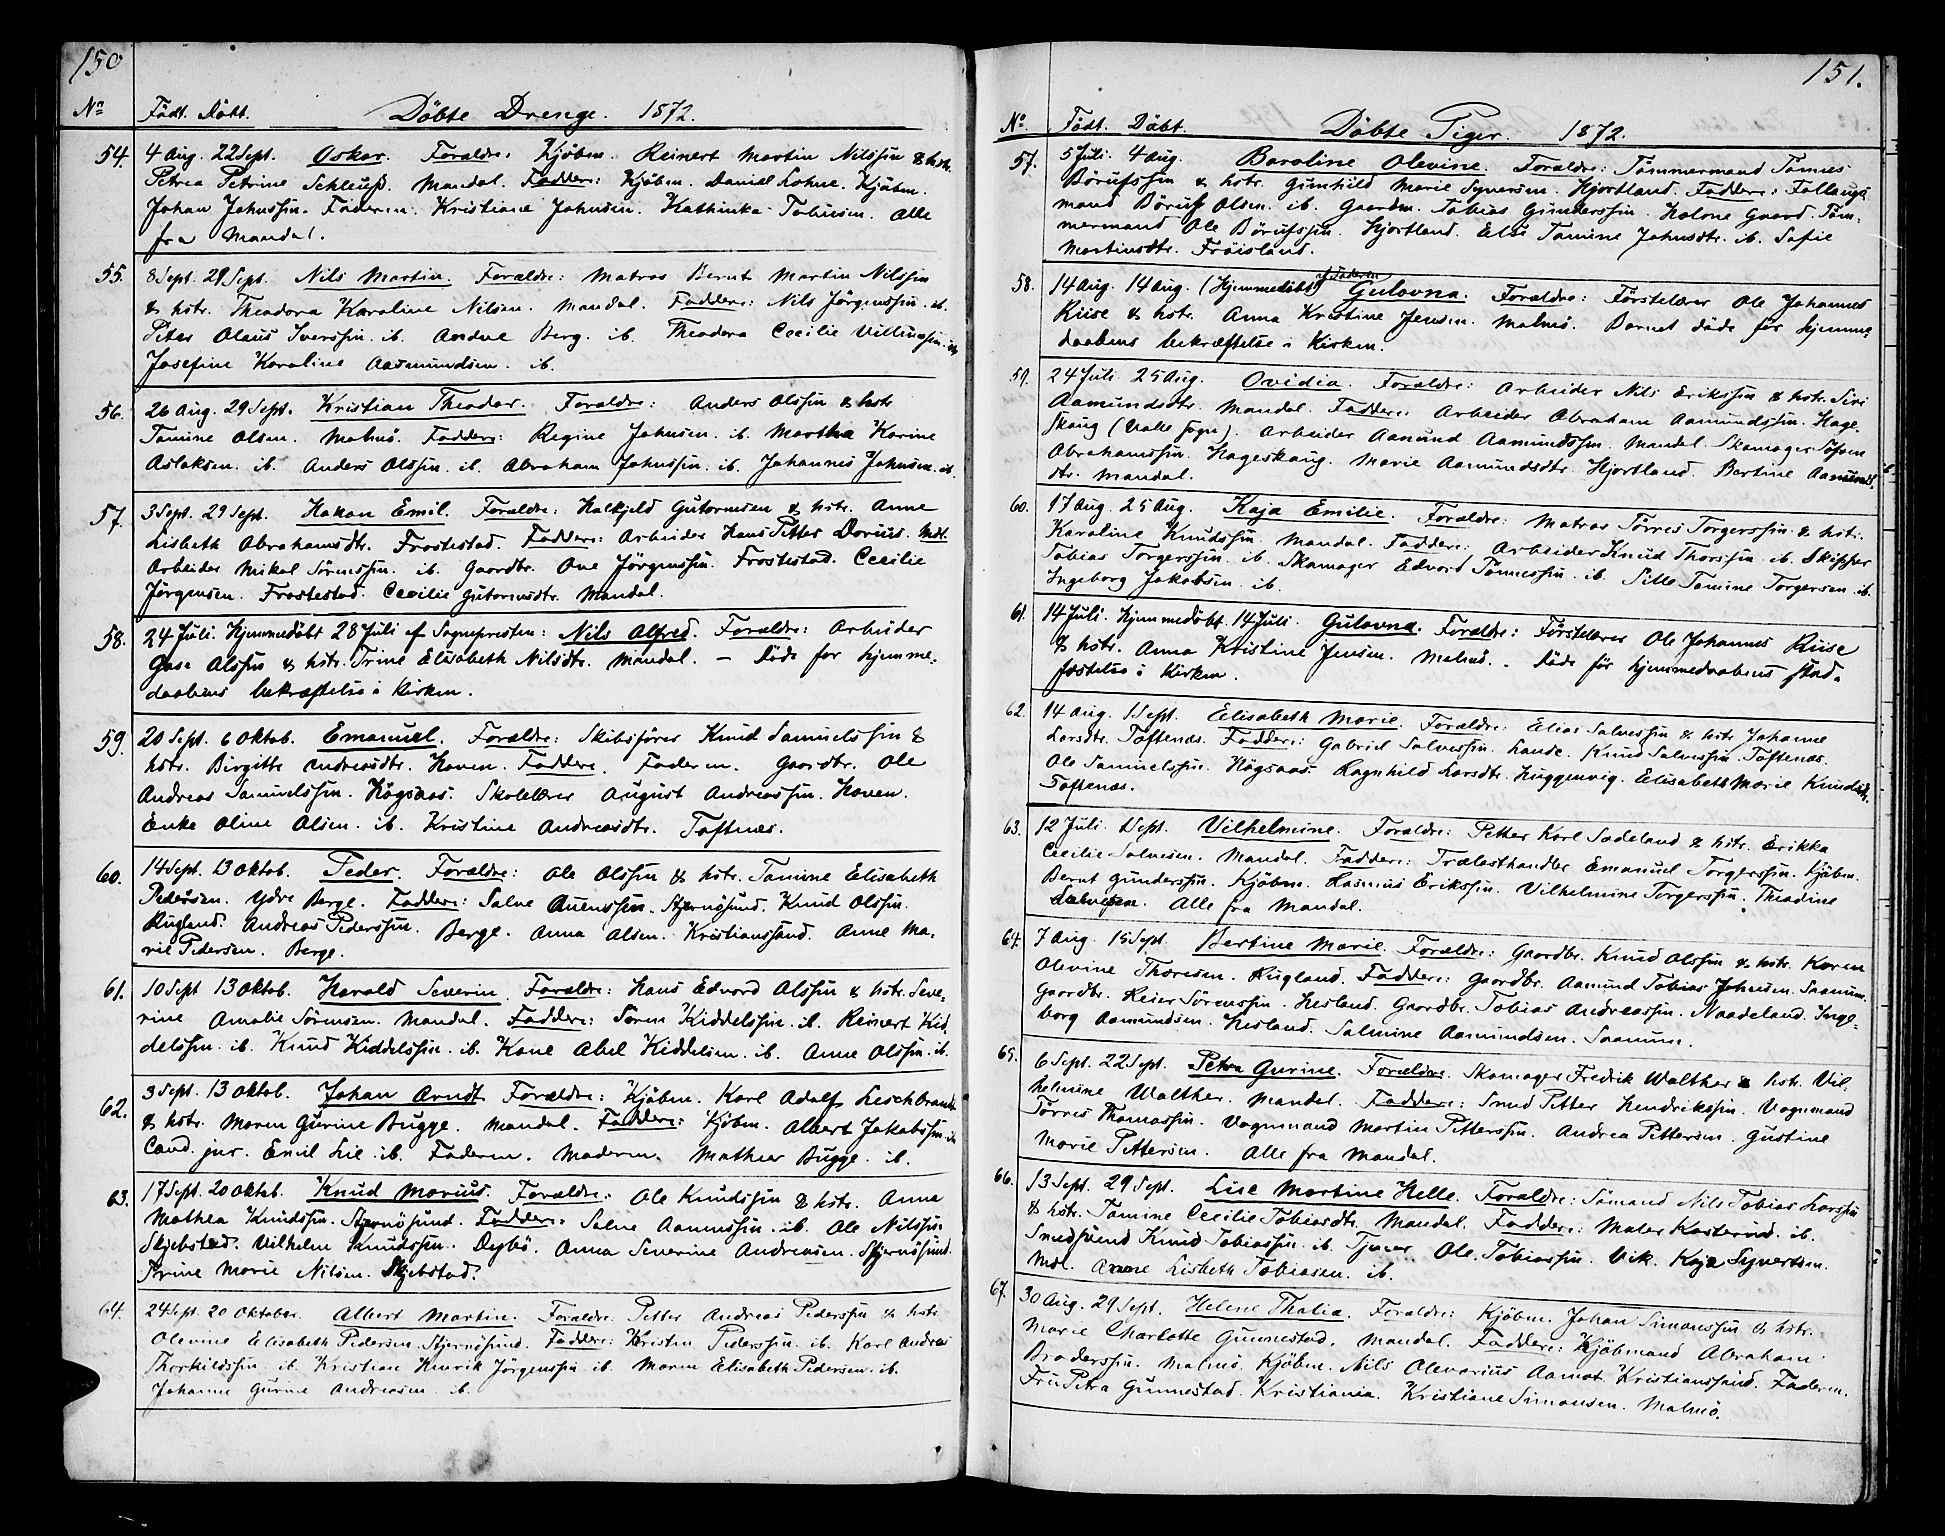 150
No Födt. Döbt. Döbte Drenge. 1872.
54. 4 Aug. 22 Sept. Oskar. Forældre: Kjöbm. Reinert Martin Nilssøn & hstr.
Petrea Petrine Schleuß. Mandal. Faddere: Kjöbm. Daniel Lohne. Kjöbm.
Johan Johnssøn. Faderen. Kristiane Johnsen. Kathinka Tobiesen. Alle
fra Mandal.
55. 8 Sept. 29 Sept. Nils Martin. Forældre: Matros Bernt Martin Nilssøn
& hstr. Theodora Karoline Nilsen. Mandal. Faddere: Nils Jörgenssøn. ib.
Peter Olaus Iverssøn. ib. Andrea Berg. ib. Theodora Cecilie
Josefine Karoline Aasmundsen. ib.
56. 26 Aug. 29 Sept. Kristian Theodor. Forældre: Anders Olssøn & hstr
Tomine Olsen. Malmö. Faddere: Regine Johnsen. ib. Martha Karine
Aslaksen. ib. Anders Olssøn. ib. Abraham Johnssøn. ib. Johannes Johnsen. ib.
57. 3 Sept. 29 Sept. Hakon Emil. Forældre: Guttormsen & hstr. Anne
Lisbeth Abrahamsdtr. Frostestad. Faddere: Arbeider Hans Petter Dorius. Mdl.
Arbeider Mikal Sörenssøn. ib. Gaardbr. Ove Jörgenssøn. Frostestad. Cecilie
Jörgensen. Frostestad. Cecilie Gutormsdtr. Mandal.
58. 24 Juli. Hjemmedöbt 28 Juli af Sognepresten: Nils Alfred. Forældre: Arbeider
Olssøn & hstr. Trine Elisabeth Nilsdtr. Mandal. – döde for hjemme-
daabens bekræftelse i kirken.
59. 20 Sept. 6 Oktob. Emanuel. Forældre: Skibsförer Knud Samuelssøn &
hstr. Birgitte Andreasdtr. Haven. Faddere. Faderen. Gaardbr. Ole
Andreas Samuelssøn. Högsaas. Skolelærer August Andreassøn. Haven.
Enke Oline Olsen. ib. Kristine Andreasdtr. Toftenæs.
60. 14 Sept. 13 Oktob. Peder. Forældre: Ole Olssøn & hstr. Tomine Elisabeth
Pedersen. Ydre Berge. Faddere: Salve Auenssøn. Stjernösund. Knud Olssøn.
Rugland. Andreas Pederssøn. Berge. Anna Olsen. Kristianssand. Anne Ma-
rie Pedersen. Berge.
61. 10 Sept 13 Oktob. Harald Severin. Forældre: Hans Edvard Olssøn & hstr. Seve-
rine Amalie Sörensen. Mandal. Faddere: Sören Kiddelssøn. ib. Reinert Kid-
delssøn. ib. Knud Kiddelssøn. ib. Kone Abel Kiddelsen. ib. Anne Olssøn. ib.
62. 3 Sept. 13 Oktob. Johan Arndt Forældre: Kjöbm. Karl Adolf Leschbrandt
& hstr. Maren Gurine Bugge. Mandal. Faddere: Kjöbm. Albert Jakobssøn. ib
Cand. jur. Emil Lie. ib. Faderen. Moderen. Mathea Bugge. ib.
63. 17 Sept. 20 Oktob. Knud Marius. Forældre: Ole Knudssøn & hstr. Anna
Mathea Knudssøn. Stjernösund. Faddere: Salve Aanenssøn. ib. Ole Nilssøn.
Skjebstad. Vilhelm Knudssøn. Dybö. Anna Severine Andreasen. Stjernösund.
Trine Marie Nilsen. Skjebstad.
64. 24 Sept. 20 Oktober. Albert Martin. Forældre. Petter Andreas Pederssøn & hstr.
Olevine Elisabeth Pedersen. Stjernösund. Faddere: Kristen Pederssøn. ib. Karl Andreas
Thorkildssøn. ib. Kristian Henrik Jörgenssøn ib. Maren Elisabeth Pedersen. ib.
Johanne Gurine Andreasen. ib.
151.
No. Födt. Döbt. Döbte Piger. 1872.
57. 5 Juli. 4 Aug. Baroline Olevine. Forældre: Tömmermand Tönnes
Börufssøn & hstr. Gunhild Marie Syversen. Hjortland. Faddere:
mand Böruf Olsen. ib. Gaardm. Tobias Gunderssøn. Holone Gaard. Töm-
mermand Ole Börufssøn. Hjortland. Else Tomine Johnsdtr. ib. Sofie
Martinsdtr. Fröisland.
58. 14 Aug. 14 Aug. (Hjemmedöbt af Faderen) Gulovna. Forældre: Förstelærer Ole Johannes
Riise & hstr. Anna Kristine Jensen. Malmö. Barnet döde för hjemme-
daabens bekræftelse i Kirken.
59. 24 Juli 25 Aug. Ovidia. Forældre: Arbeider Nils Erikssøn & hstr. Siri
Aamundsdtr. Mandal. Faddere: Arbeider Abraham Aamundssøn. Hage-
skaug (Valle Sogn). Arbeider Aanund Aamundssøn. Mandal. Skomager
Abrahamssøn. Hageskaug. Marie Aamundsdtr. Hjortland. Bertine Aamunds-
dtr. Mandal.
60. 17 Aug. 25 Aug. Kaja Emilie. Forældre: Matros Törres Torgerssøn. & hstr.
Karoline Knudssøn. Mandal. Faddere: Arbeider Knud Thorssøn. ib. Skipper
Tobias Torgerssøn. ib. Skomager Edvard Tönnessøn. ib. Sille Tomine Torgersen. ib.
Ingeborg Jakobsen. ib.
61. 14 Juli. Hjemmedöbt. 14 Juli. Gulovna. Forældre: Förstelærer Ole Johannes Riise
& hstr. Anna Kristine Jensen. Malmö. – döde för hjemmedaabens stad-
fæstelse i Kirken.
62. 14 Aug. 1 Sept. Elisabeth Marie. Forældre: Elias Salvessøn & hstr. Johanne
Larsdtr. Toftenæs. Faddere: Gabriel Salvessøn. Lande. Knud Salvessøn. Toftenæs.
Ole Samuelssøn. Högsaas. Ragnhild Larsdtr. Huggenvig. Elisabeth Marie Knudsdtr.
Toftenæs.
63. 12 Juli. 1 Sept. Vilhelmine. Forældre: Petter Karl Sadeland & hstr. Erikka
Cecilie Salvesen. Mandal. Faddere: Trælasthandler Emanuel Torgerssøn. Kjöbm.
Bernt Gunderssøn. Kjöbm. Rasmus Erikssøn. Vilhelmine Torgerssøn. Theodine
Salvesen. Alle fra Mandal.
64. 7 Aug. 15 Sept. Bertine Marie. Forældre: Gaardbr. Knud Olssøn & hstr. Karen
Olevine Thoresen. Rugland. Faddere: Gaardbr. Aamund Tobias Johnsen. Saanum.
Gaardbr. Reier Sörenssøn. Hesland. Gaardbr. Tobias Andreassøn. Naadeland. Inge-
borg Aamundsen. Hesland. Salmine Aamundsen. Saanum.
65. 6 Sept. 22 Sept. Petra Gurine. Forældre. Skomager Fredrik Walther & hstr. Vil-
helmine Walther. Mandal. Faddere: Smed Petter Hendrikssøn. Vognmand
Törres Thomassøn. Vognmand Martin Petterssøn. Andrea Pettersen. Gustine
Marie Pettersen. Alle fra Mandal.
66. 13 Sept. 29 Sept. Lise Martine Helle. Forældre: Sömand Nils Tobias Larssøn
& hstr. Tomine Cecilie Tobiasdtr. Mandal. Faddere: Maler Kasterud. ib.
Smedsvend Knud Tobiassøn. ib. Tjener Ole Tobiassøn. Vik. Kaja Syvertsen.
Mdl. Anne Lisbeth Tobiasen. ib.
67. 30 Aug. 29 Sept. Helene Thalia. Forældre: Kjöbm. Johan Simonssøn & hstr.
Marie Charlotte Gunnestad. Mandal. Faddere: Kjöbmand Abraham
Braderssøn. Malmö. Kjöbm. Nils Olevarius Aamot. Kristianssand. Faderen.
Fru Petra Gunnestad. Kristiania. Kristiane Simonsen. Malmö.